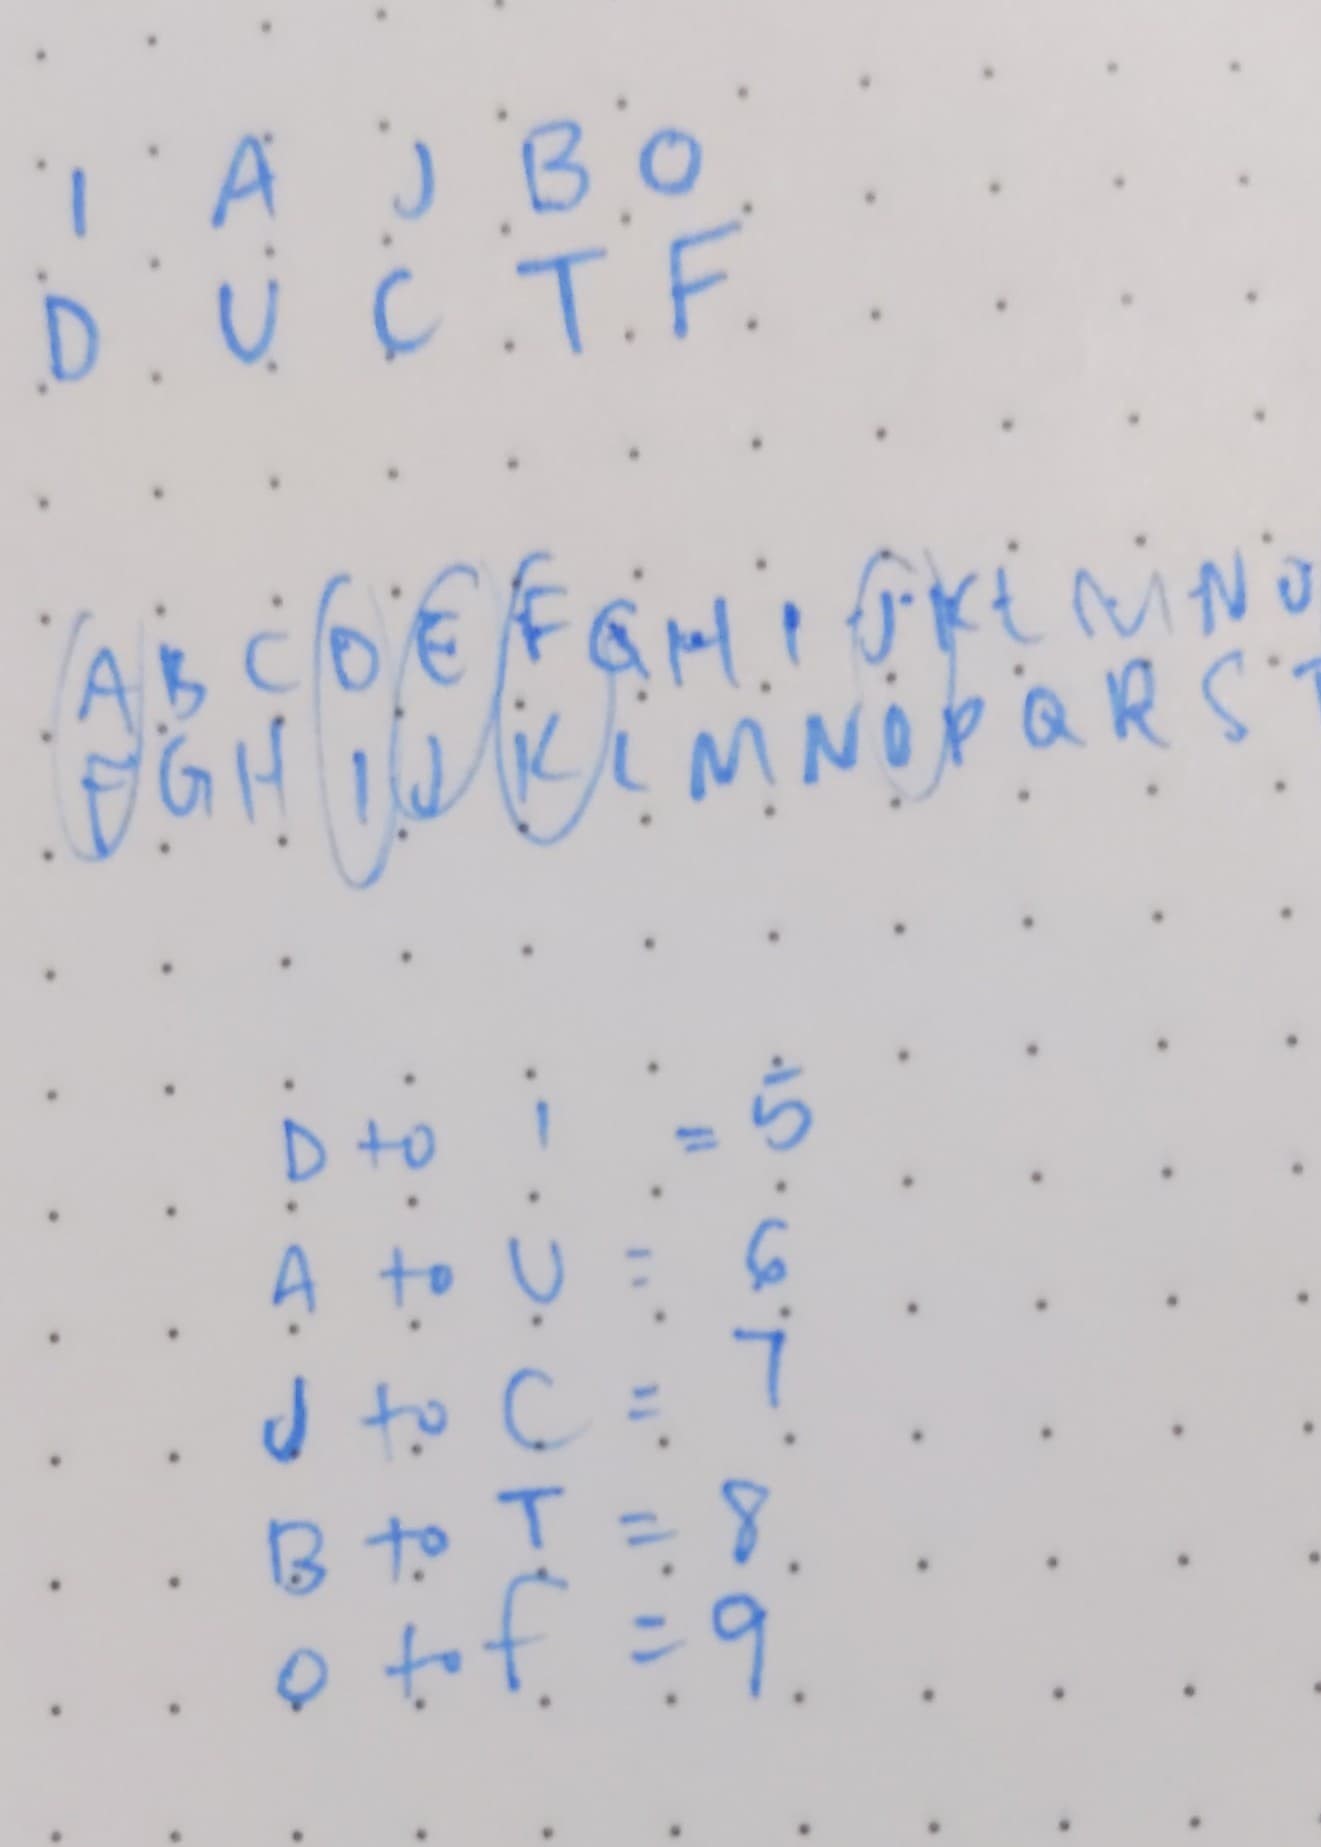 I A J B O
D U C T F
A B C D E F G H I J K L M N O
F G H I J K L M N O P Q R S T
D to I = 5
A to U = 6
J to C = 7
B to T = 8
O to f = 9